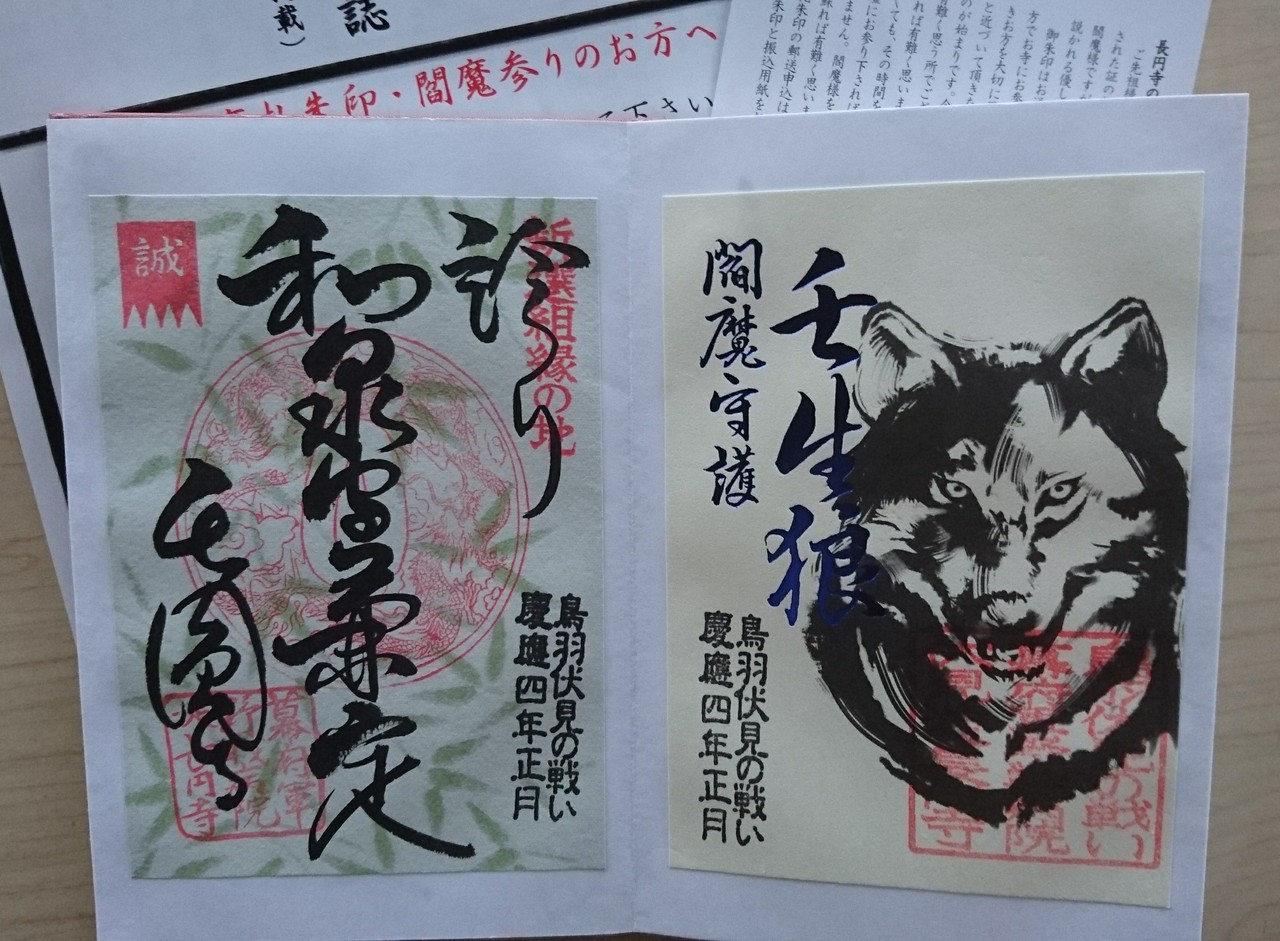 誌
載）
朱印・閻魔参りのお方へ
下さい
長円寺の
ご先祖様
された証の
閻魔様ですが
説かれる優し
御朱印はお
方でお寺にお参
きお方を大切に
と近づいて頂きた
のが始まりです。
有難く思う所でご
れば有難く思いま
ても、その時間を
にお参り下されば
ません。閻魔様を
れば有難く思いま
朱印の郵送申込は
朱印と振込用紙を
新選組縁の地
誠
和泉守兼定
長圓寺
鳥羽伏見の戦い
慶應四年正月
幕府軍
院
円寺
壬生狼
閻魔守護
鳥羽伏見の戦い
慶應四年正月
の戦い
院
寺